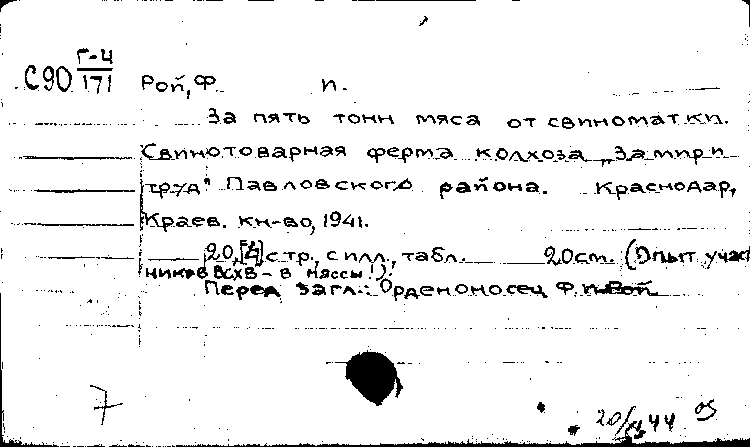 С90 Г-4/171 Рой, Ф. П.
За пять тонн мяса от свиноматки.
Свинотоварная ферма колхоза „За мир и
труд" Павловского района. Краснодар,
Краев. кн-во, 1941.
20, [4] стр., с илл., табл. 20 см. (Опыт участ
ников ВСХВ - в массы!).
Перед загл.: Орденоносец Ф. П. Рой
7
44